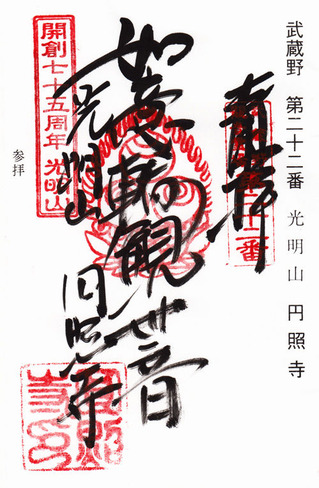 武蔵野 第二十二番 光明山 円照寺
奉拝
如意輪観世音
光明山
円照寺
開創七十五周年 光明山
参拝